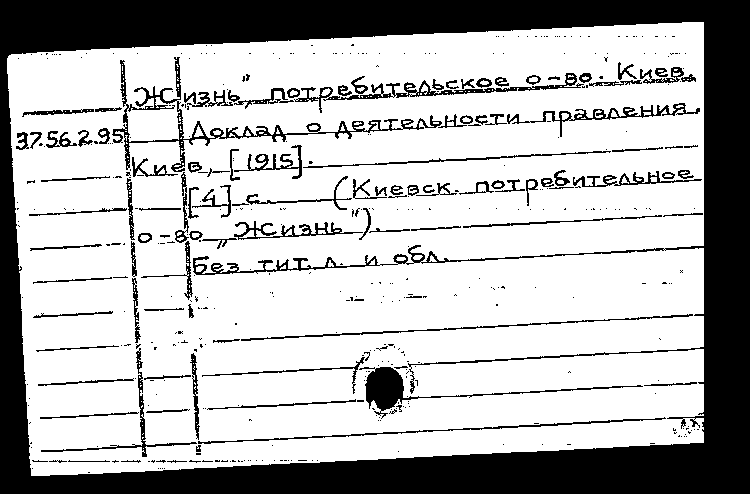 „Жизнь", потребительское о-во. Киев.
37.56.2.95 Доклад о деятельности правления.
Киев, [1915].
[4] с. (Киевск. потребительное
о-во „Жизнь").
Без тит. л. и обл.